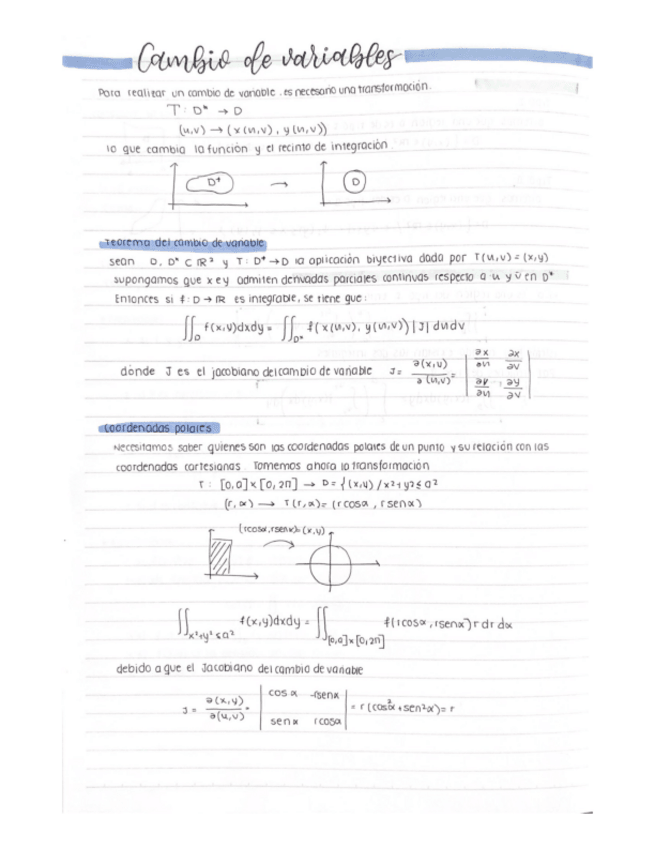 Cambio de variables
Para realizar un cambio de variable, es necesario una transformación.
T: D* → D
(u,v) → (x(u,v), y(u,v))
lo que cambia la función y el recinto de integración.
D* → D
Teorema del cambio de variable
sean D, D* ⊂ ℝ² y T: D* → D la aplicación biyectiva dada por T(u,v) = (x,y)
supongamos que x e y admiten derivadas parciales continuas respecto a u y v en D*
Entonces si f: D → ℝ es integrable, se tiene que:
∬_D f(x,y)dxdy = ∬_D* f(x(u,v), y(u,v)) |J| dudv
dónde J es el jacobiano del cambio de variable J = ∂(x,y)/∂(u,v) = | ∂x/∂u ∂x/∂v ; ∂y/∂u ∂y/∂v |
Coordenadas polares
Necesitamos saber quienes son las coordenadas polares de un punto y su relación con las
coordenadas cartesianas Tomemos ahora la transformación
T: [0,a]×[0,2π] → D = {(x,y) / x²+y² ≤ a²
(r,α) → T(r,α) = (r cosα, r senα)
(r cosα, r senα) = (x,y)
∬_{x²+y² ≤ a²} f(x,y)dxdy = ∬_{[0,a]×[0,2π]} f(r cosα, r senα) r dr dα
debido a que el Jacobiano del cambio de variable
J = ∂(x,y)/∂(u,v) = | cos α -r sen α ; sen α r cos α | = r(cos²α + sen²α) = r